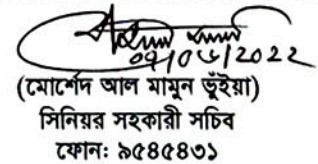 ০৭/০৬/2022
(মোর্শেদ আল মামুন ভূঁইয়া)
সিনিয়র সহকারী সচিব
ফোন: ৯৫৪৫৪৩১